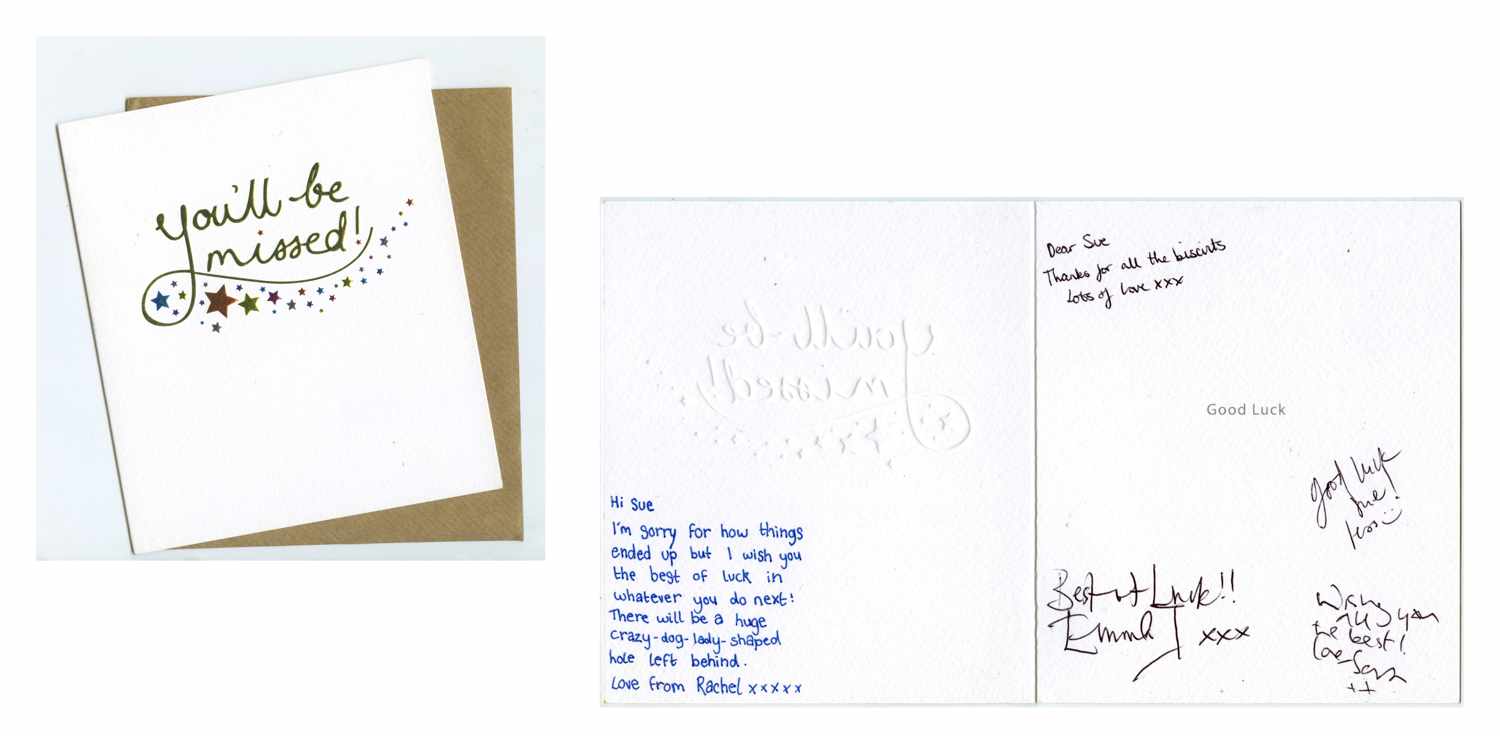 you'll be
missed!
you'll be
missed!
Hi Sue
I'm sorry for how things
ended up but I wish you
the best of luck in
whatever you do next!
There will be a huge
crazy-dog-lady-shaped
hole left behind.
Love from Rachel xxxxx
Dear Sue
Thanks for all the biscuits
Lots of love xxx
Good Luck
good luck
sue!
Best of Luck!!
Emma J xxx
you
the best!
love